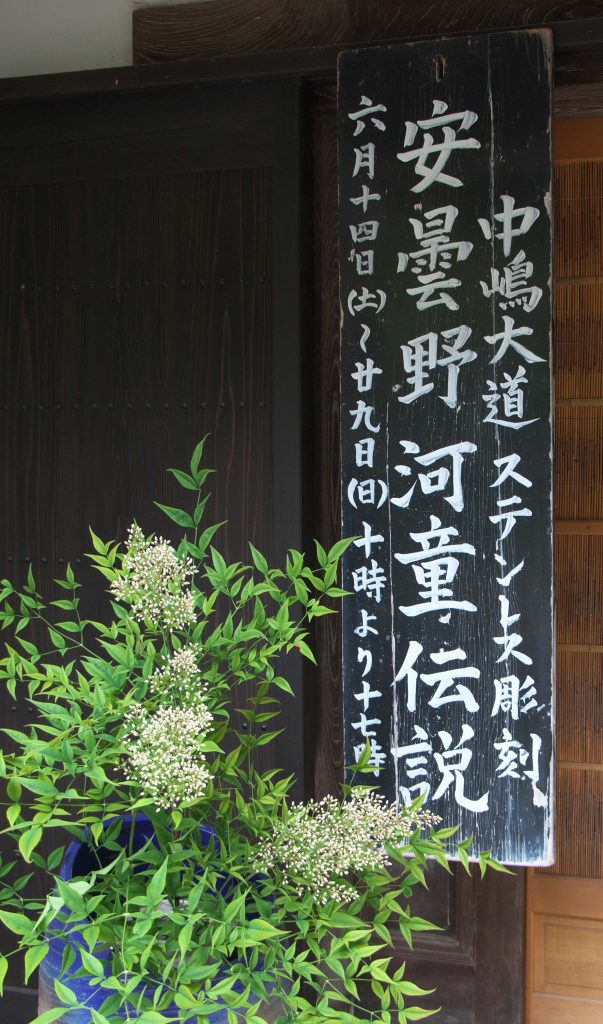 中嶋大道 ステンドス彫刻
安曇野河童伝説
六月十四日(土)〜廿九日(日)十時より十七時